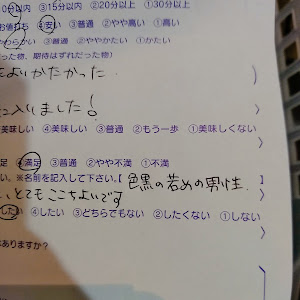 0分以内 ③15分以内 ②20分以上 ①30分以上
お値打ち ④安い ③普通 ②やや高い ①高い
やわらかい ③普通 ②ややかたい ①かたい
った物、期待はずれだった物)
よいかたかった. )
に入りました! )
美味しい ④美味しい ③普通 ②もう一歩 ①美味しくない
足 ④満足 ③普通 ②やや不満 ①不満
い。※名前を記入して下さい。【色黒の若めの男性.
、とてもここちよいです 〉
したい ④したい ③どちらでもない ②したくない ①しない
はありますか?